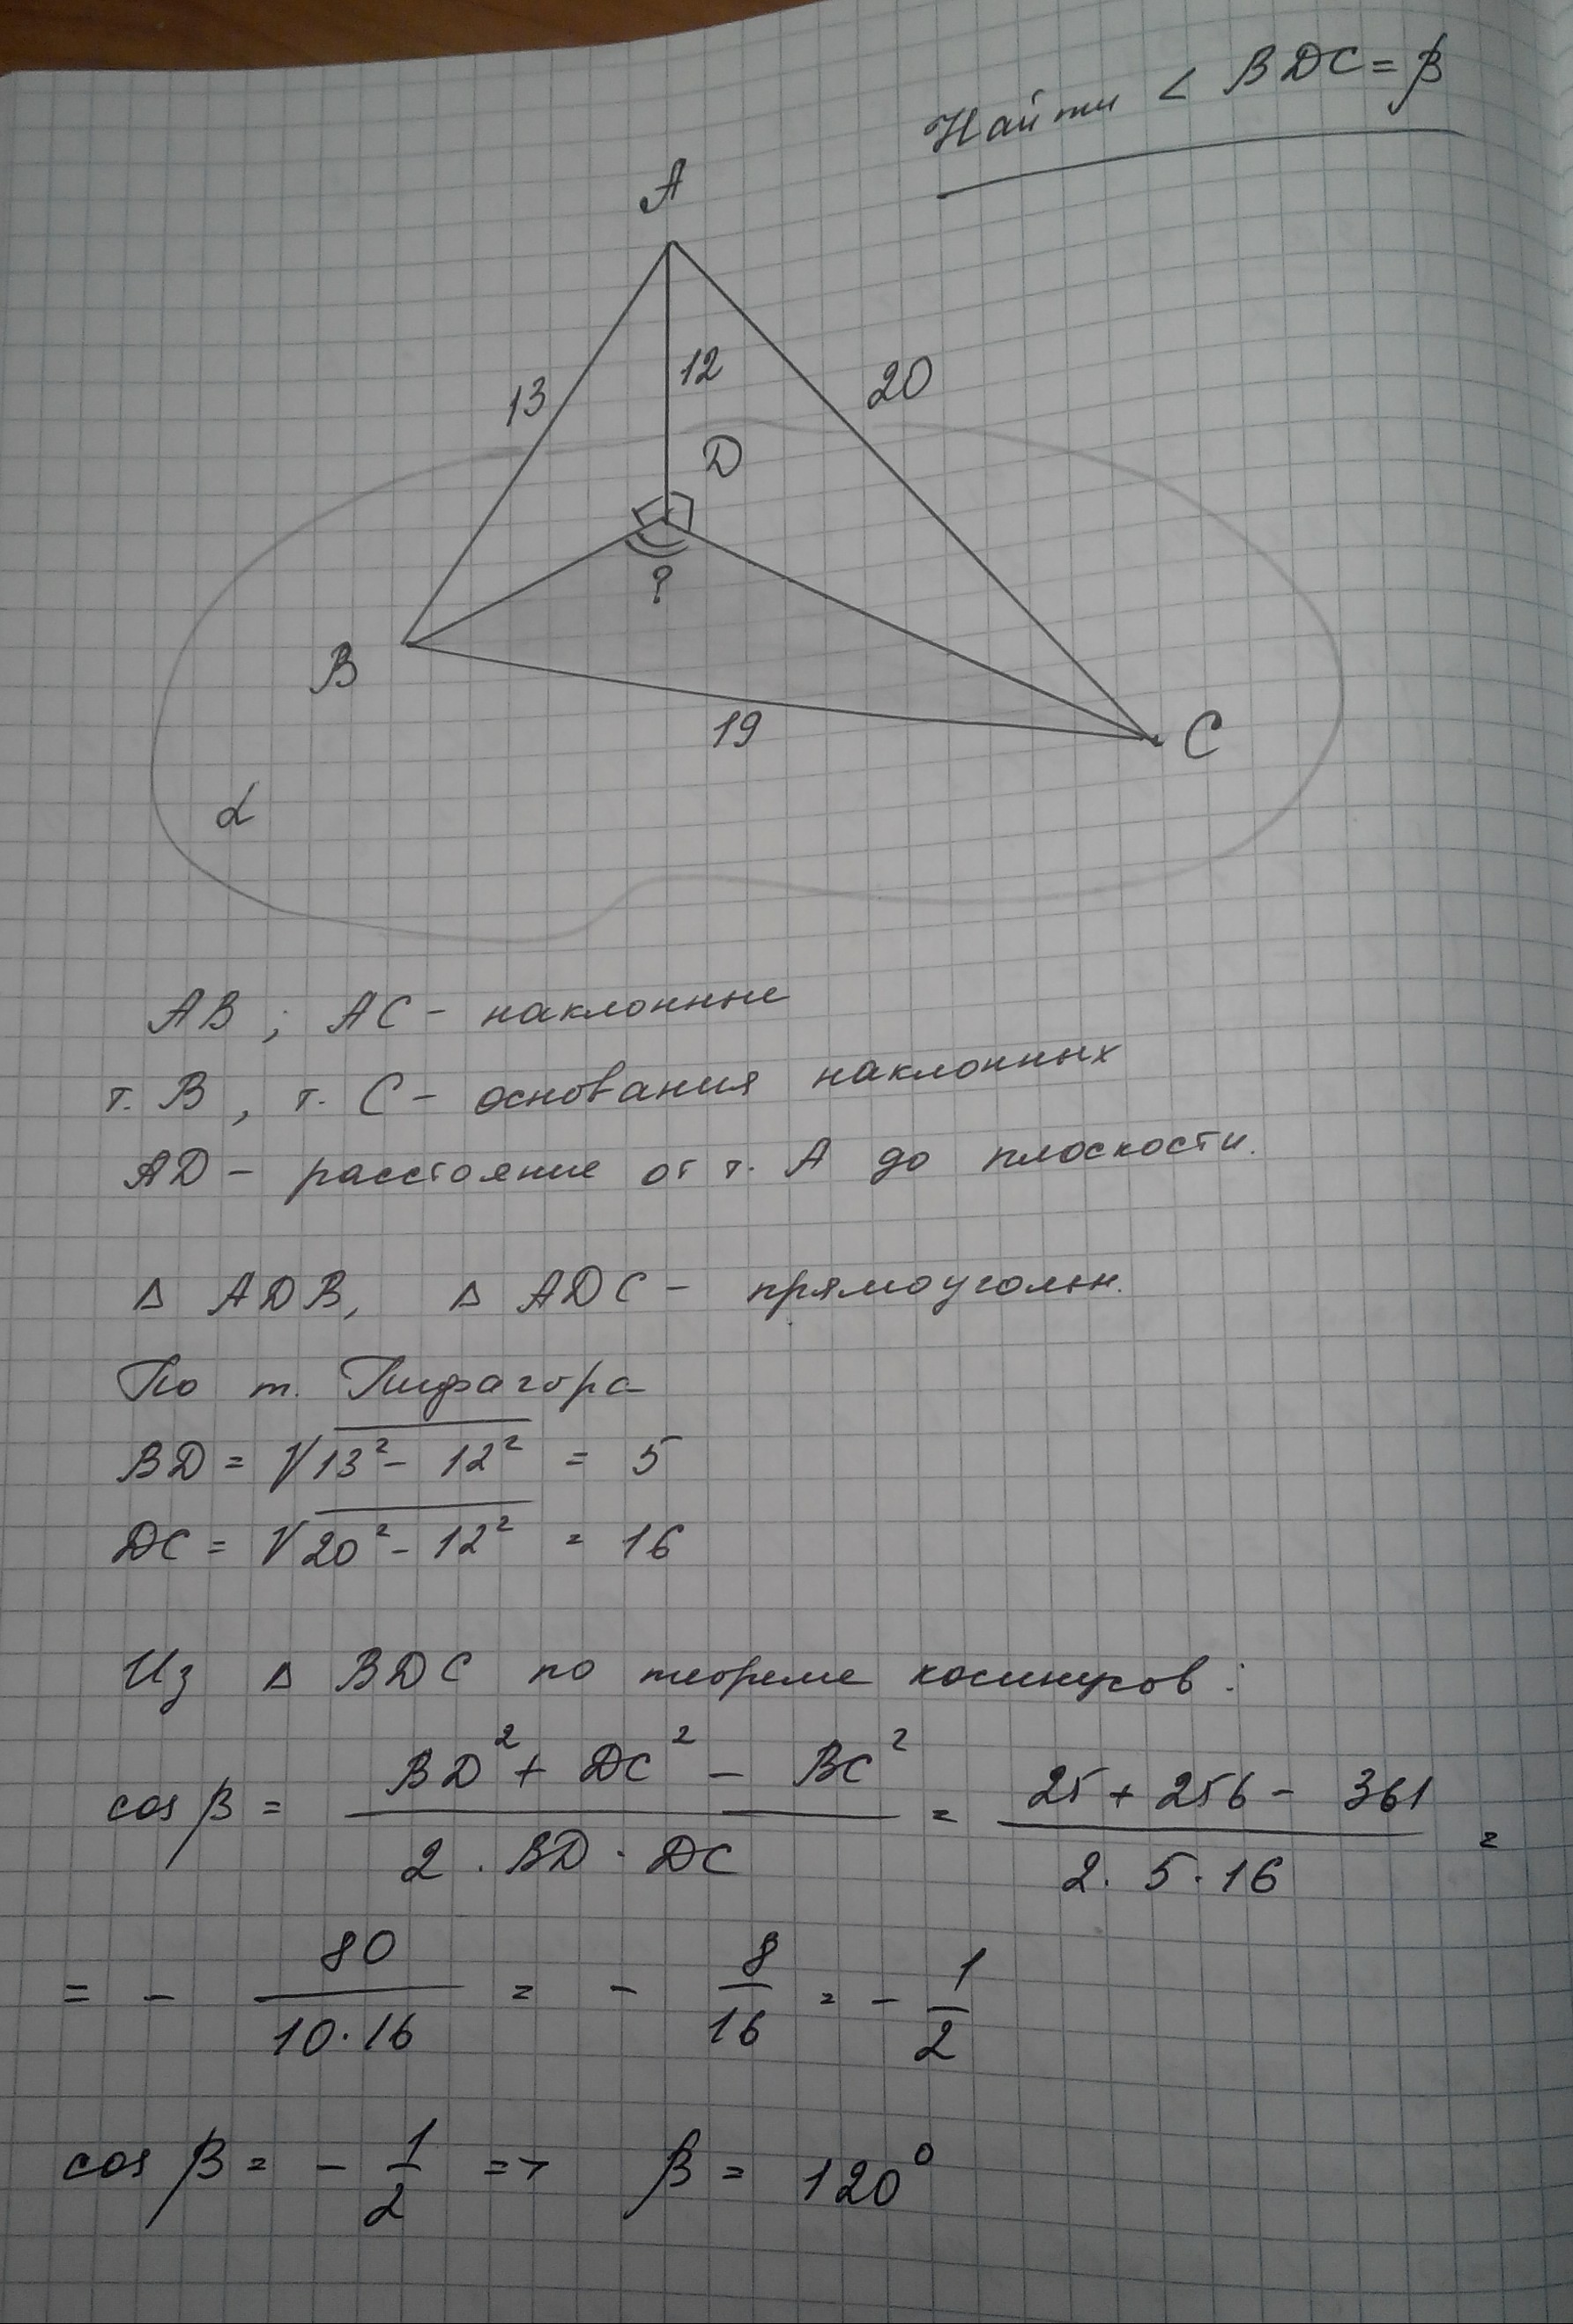 Найти < BDC = β
A
13
12
20
D
?
B
19
C
α
AB ; AC - наклонные
т. B , т. C - основания наклонных
AD - расстояние от т. A до плоскости.
Δ ADB, Δ ADC - прямоугольн.
По т. Пифагора
BD = √13² - 12² = 5
DC = √20² - 12² = 16
Из Δ BDC по теореме косинусов :
cos β = BD² + DC² - BC² / 2 · BD · DC = 25 + 256 - 361 / 2 · 5 · 16 =
= - 80 / 10 · 16 = - 8 / 16 = - 1 / 2
cos β = - 1 / 2 => β = 120⁰